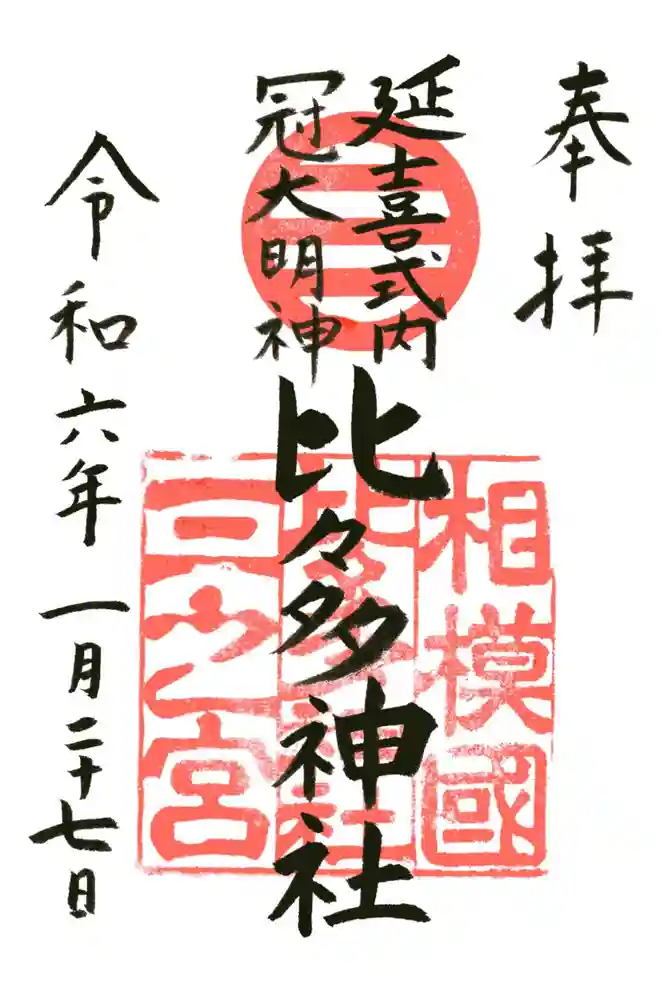 奉拝
延喜式内
冠大明神
比々多神社
令和六年一月二十七日
相模國
三之宮